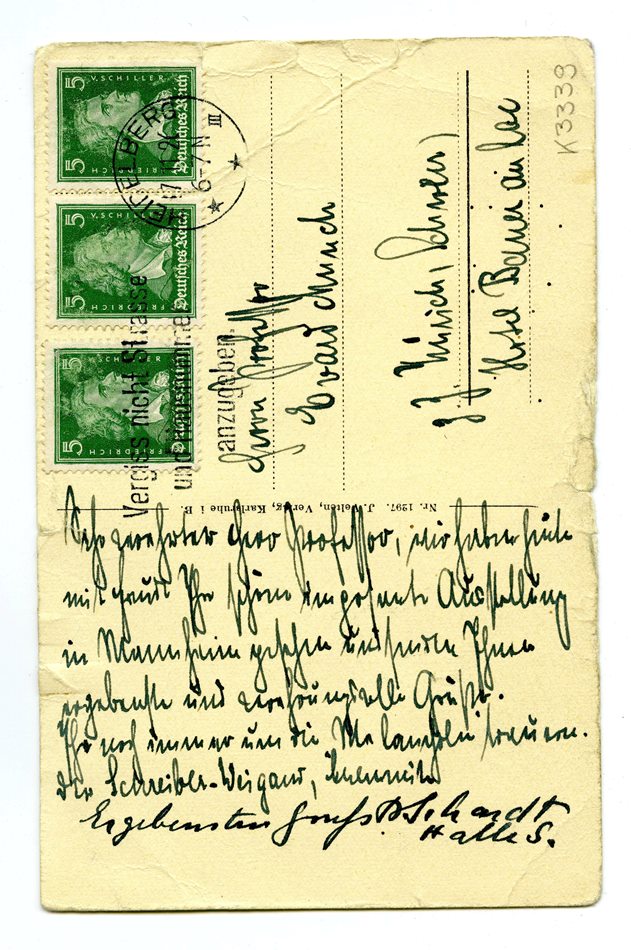 K 3339
5 V. SCHILLER 5
FRIEDRICH
Deutsches Reich
5 V. SCHILLER 5
FRIEDRICH
Deutsches Reich
5 SCHILLER 5
FRIEDRICH
Deutsches Reich
HEIDELBERG
6-7 N
III
Vergiss nicht Strasse
und
anzugeben.
Herrn Professor
Edvard Munch
Zürich,
Hotel Baur au Lac
Nr. 1297. J. Velten, Verlag, Karlsruhe i B.
Sehr verehrter Herr Professor, wir haben heute
mit Freude Ihre schöne imposante Ausstellung
in Mannheim gesehen und senden Ihnen
ergebenste und verehrungsvolle Grüße.
Ihr noch immer um die Melancholie trauernder
Schreiber-Weigand, Chemnitz
Ergebensten Gruß Schardt
Halle S.